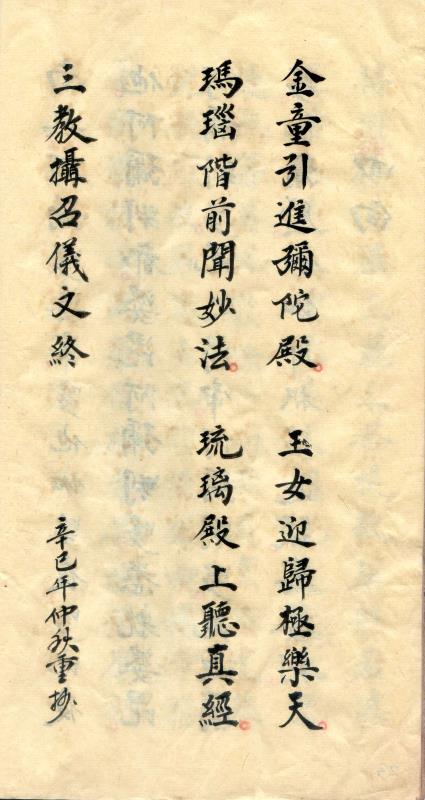 金童引進彌陀殿。王女迎歸極樂天。
瑪瑙階前聞妙法。琉璃殿上聽真經。
三教攝召儀文終
辛巳年仲秋重抄